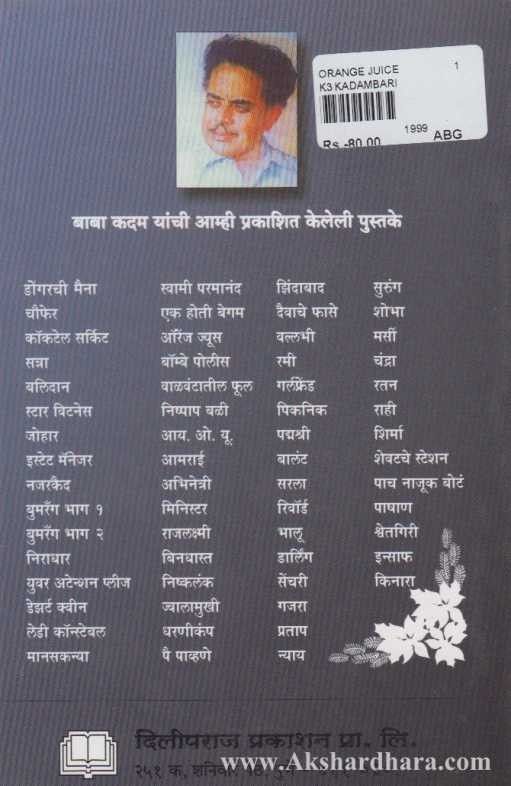 ORANGE JUICE 1
K3 KADAMBARI
Rs -80.00 1999 ABG
बाबा कदम यांची आम्ही प्रकाशित केलेली पुस्तके
डोंगरची मैना स्वामी परमानंद झिंदाबाद सुरुंग
चौफेर एक होती बेगम दैवाचे फासे शोभा
कॉकटेल सर्किट ऑरेंज ज्यूस वल्लभी मर्सी
सत्रा बॉम्बे पोलीस रमी चंद्रा
बलिदान वाळवंटातील फूल गर्लफ्रेंड रतन
स्टार विटनेस निष्पाप बळी पिकनिक राही
जोहार आय. ओ. यू. पद्मश्री शिर्मा
इस्टेट मॅनेजर आमराई बालंट शेवटचे स्टेशन
नजरकैद अभिनेत्री सरला पाच नाजूक बोटं
बुमरँग भाग १ मिनिस्टर रिवॉर्ड पाषाण
बुमरँग भाग २ राजलक्ष्मी भालू श्वेतगिरी
निराधार बिनधास्त डार्लिंग इन्साफ
युवर अटेन्शन प्लीज निष्कलंक सेंचरी किनारा
डेझर्ट क्वीन ज्वालामुखी गजरा
लेडी कॉन्स्टेबल धरणीकंप प्रताप
मानसकन्या पै पाव्हणे न्याय
दिलीपराज प्रकाशन प्रा. लि.
२५१ क, शनिवार
www.Akshardhara.com